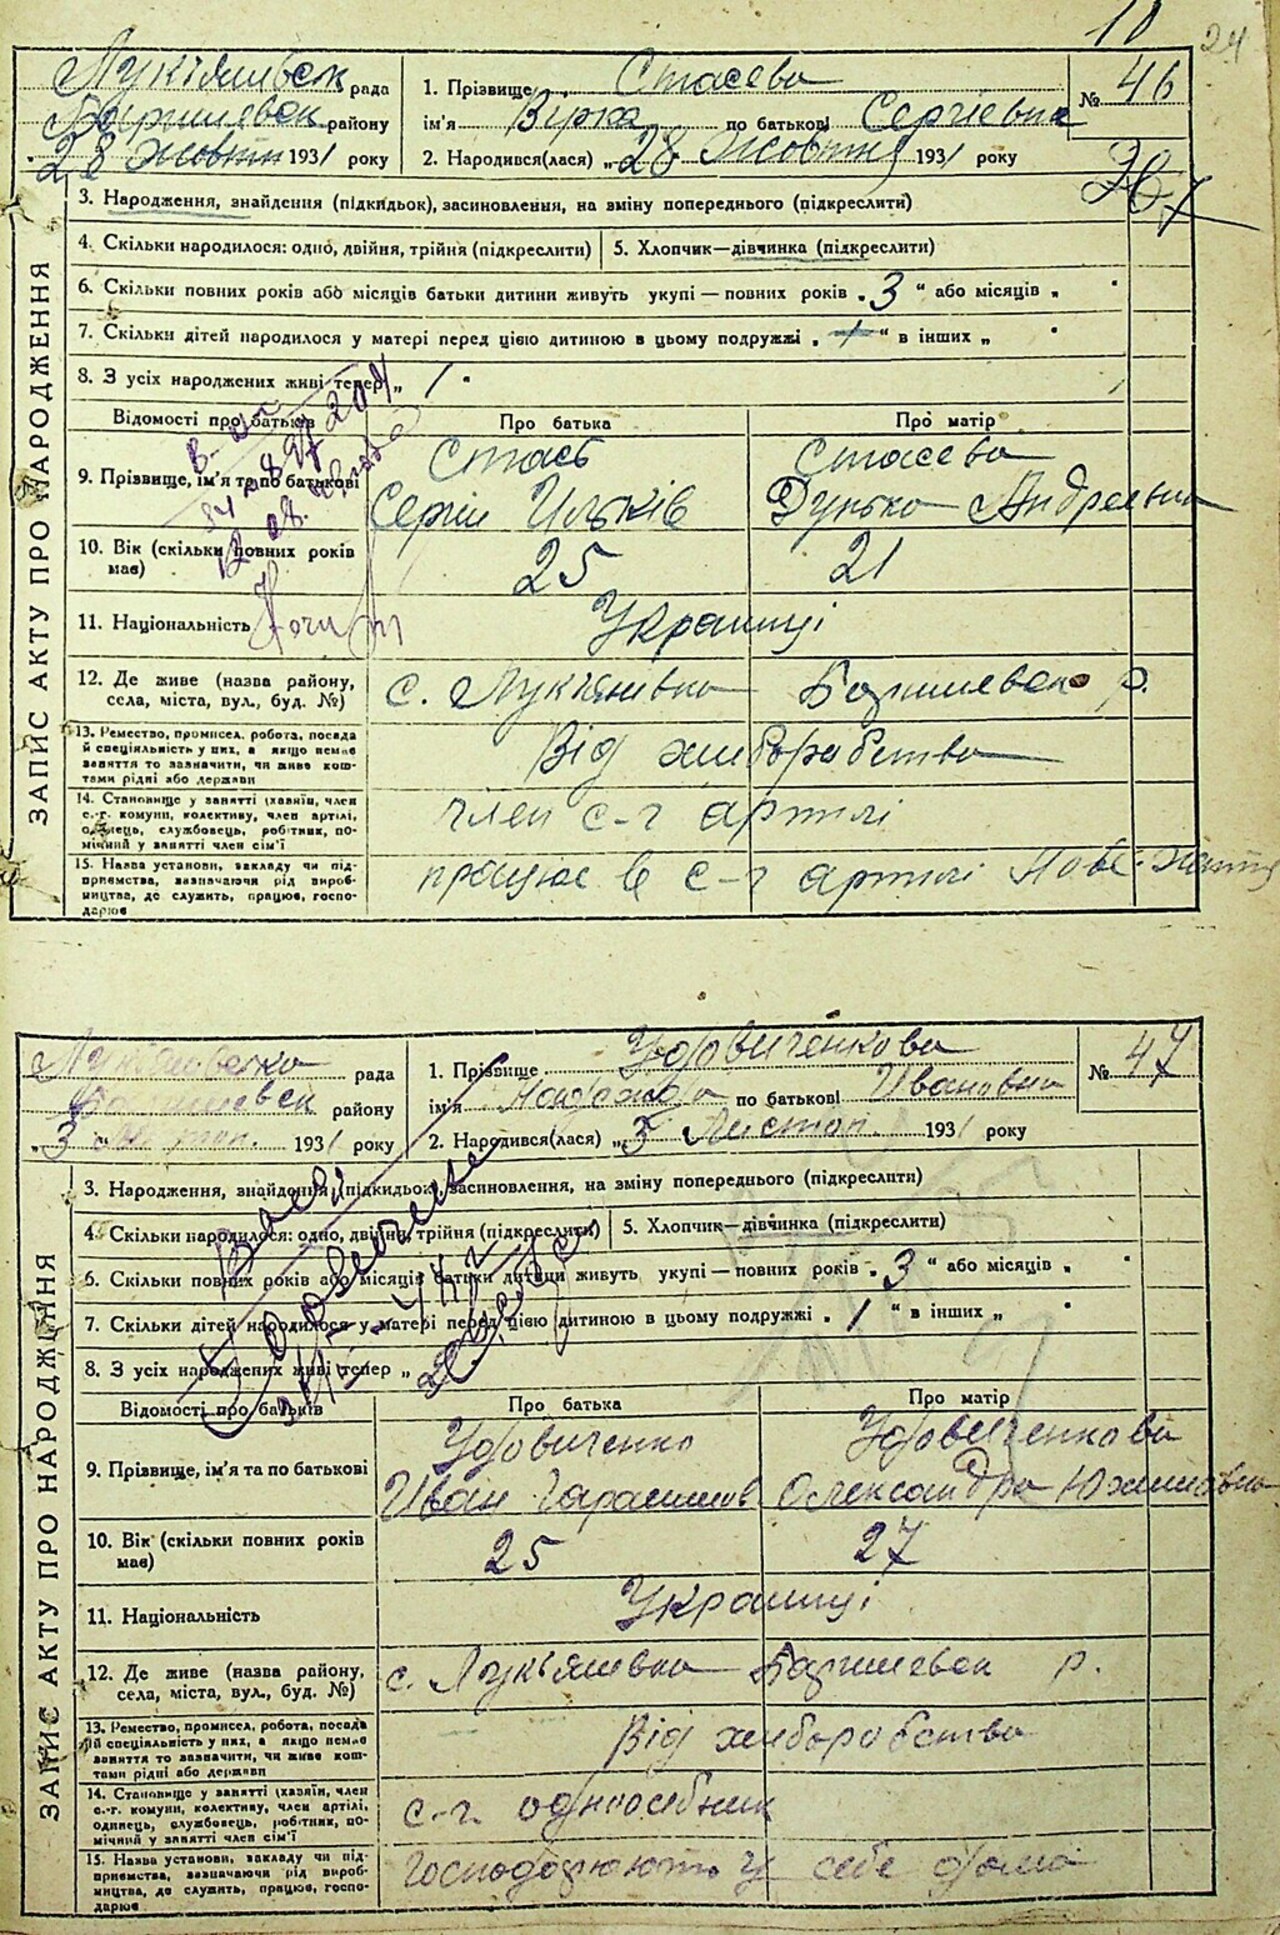 24
Лукіянівськ рада
Баришевськ району
28 жовтн 1931 року
1. Прізвище Стасева
ім'я Вірка по батькові Сергіевна
2. Народився(лася) „28 жовтня 1931 року
№ 46
3. Народження, знайдення (підкидьок), засиновлення, на зміну попереднього (підкреслити)
4. Скільки народилося: одно, двійня, трійня (підкреслити)
5. Хлопчик—дівчинка (підкреслити)
6. Скільки повних років або місяців батьки дитини живуть укупі — повних років „3“ або місяців „
7. Скільки дітей народилося у матері перед цією дитиною в цьому подружжі „1“ в інших „
8. З усіх народжених живі тепер „1
Відомості про батьків
Про батька
Про матір
9. Прізвище, ім'я та по батькові
Стась
Сергій Ильків
Стасева
Дунька Андреевна
10. Вік (скільки повних років має)
25
21
11. Національність
Українці
12. Де живе (назва району, села, міста, вул., буд. №)
с. Лукіянівка Баришевськ р.
13. Ремество, промисел, робота, посада й спеціяльність у них, а якщо немає заняття то зазначити, чи живе коштами рідні або держави
Від хліборобства
14. Становище у занятті (хазяїн, член с.-г. комуни, колективу, член артілі, одинець, службовець, робітник, помічний у занятті член сім'ї
член с-г артілі
15. Назва установи, закладу чи підприємства, зазначаючи рід виробництва, де служить, працює, господарює
працює в с-г артілі Нове життя
ЗАПИС АКТУ ПРО НАРОДЖЕННЯ
Лукіяновська рада
Баришевськ району
„3“ 1931 року
1. Прізвище Удовиченкова
ім'я Надежда по батькові Ивановна
2. Народився(лася) „3 Листоп. 1931 року
№ 47
3. Народження, знайдення (підкидьок), засиновлення, на зміну попереднього (підкреслити)
4. Скільки народилося: одно, двійня, трійня (підкреслити)
5. Хлопчик—дівчинка (підкреслити)
6. Скільки повних років або місяців батьки дитини живуть укупі — повних років „3“ або місяців „
7. Скільки дітей народилося у матері перед цією дитиною в цьому подружжі „1“ в інших „
8. З усіх народжених живі тепер „2
Відомості про батьків
Про батька
Про матір
9. Прізвище, ім'я та по батькові
Удовиченко
Иван Гарасимов
Удовиченкова
Олександра Юхимовна
10. Вік (скільки повних років має)
25
27
11. Національність
Українці
12. Де живе (назва району, села, міста, вул., буд. №)
с. Лукьянівка Баришевськ р.
13. Ремество, промисел, робота, посада й спеціяльність у них, а якщо немає заняття то зазначити, чи живе коштами рідні або держави
Від хліборобства
14. Становище у занятті (хазяїн, член с.-г. комуни, колективу, член артілі, одинець, службовець, робітник, помічний у занятті член сім'ї
с.-г. одноосібник
15. Назва установи, закладу чи підприємства, зазначаючи рід виробництва, де служить, працює, господарює
Господарюють у себе дома
ЗАПИС АКТУ ПРО НАРОДЖЕННЯ